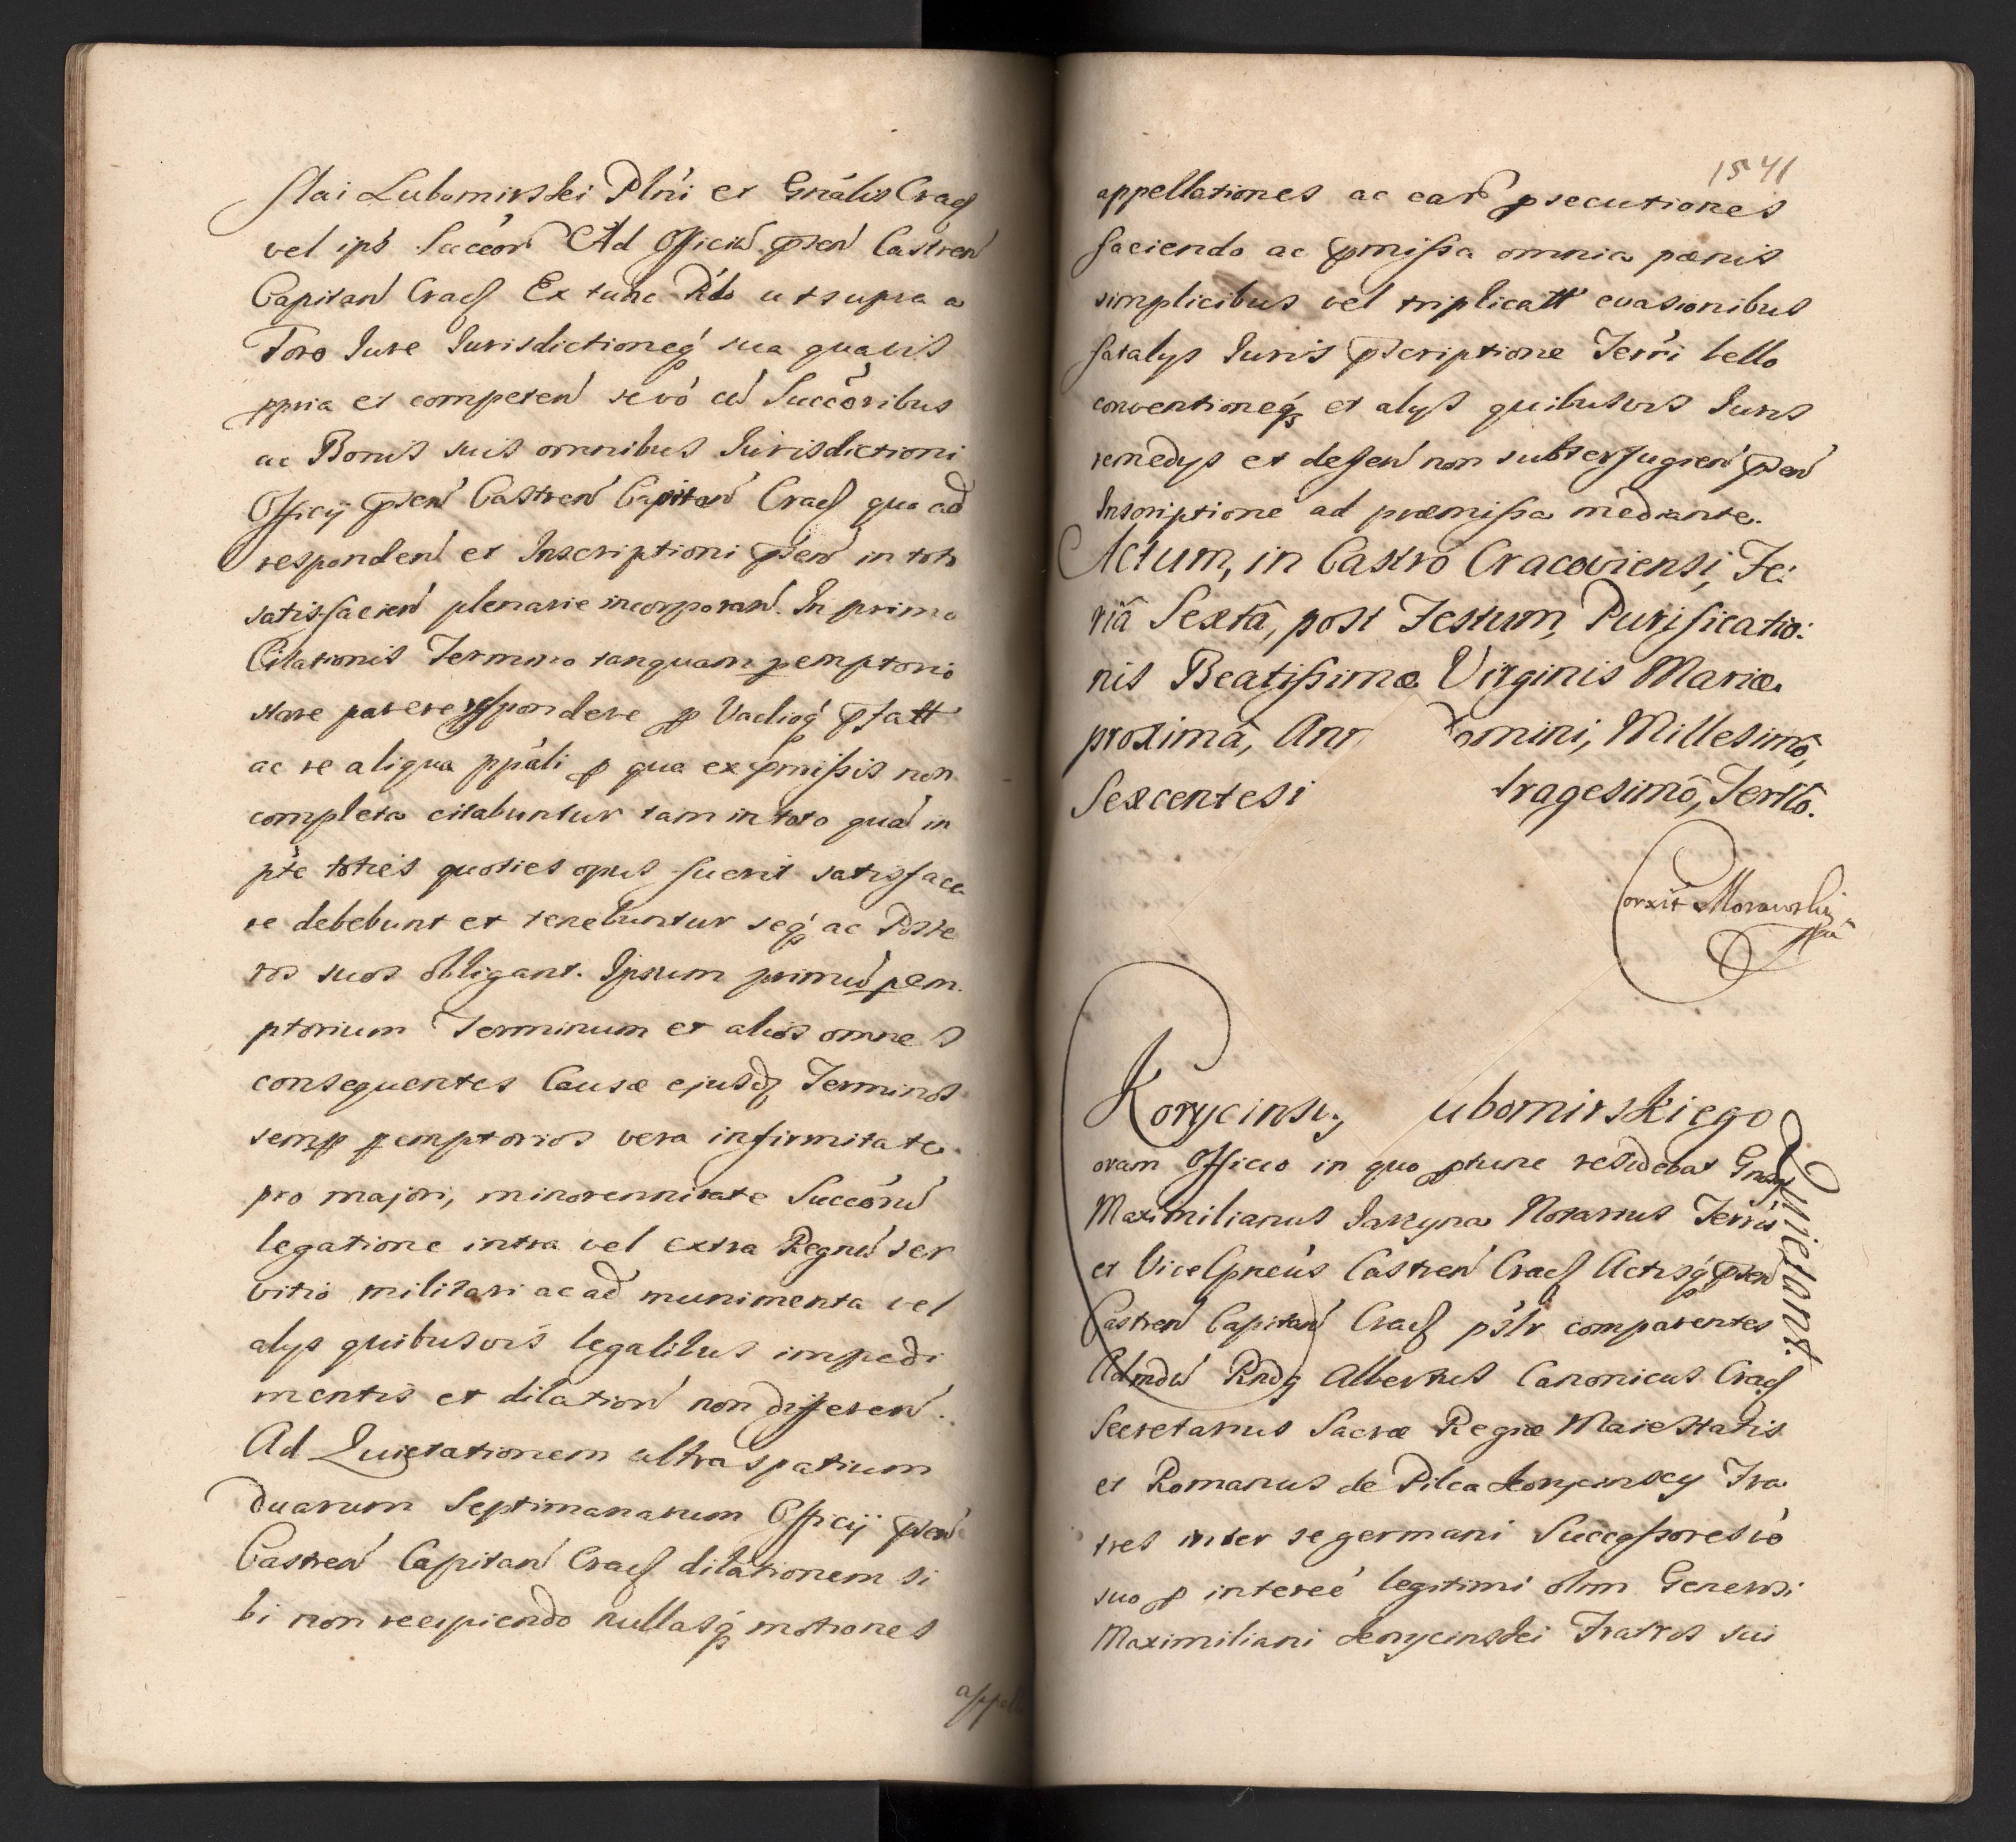 slai Lubomirskei Plńi et Gnális Cracs
vel ipś Succeor Ad Officiu psen Castren
Capitan Cracs Ex tunc Pdo ut supra a
Foro Iure Iurisdictioneq sua quavis
ppria et competen sevo cu Succóribus
ac Bonis suis omnibus Iurisdictioni
Officij psen Castren Capitan Cracs qua ad
responden et Inscriptioni psen in toto
satisfacien plenarie incorporan. In primo
Citationis Termino tanquam pemptorio
stare parere respondere p Vadioq pfatt
ac re aliqua ppáli p qua ex pmissis non
completa citabuntur tam in toto qua in
pte toties quoties opus fuerit satisface
re debebunt et tenebuntur seq ac Poste
ros suos obligant. Ipsum primu pem
ptorium Terminum et alios omnes
consequentes Causæ ejusd Terminos
semp pemptorios vera infirmitate
pro majori, minorennitate Succóru
legatione intra vel extra Regnu ser
vitio militari ac ad munimenta vel
alys quibusvis legalibus impedi
mentis et dilation non differen.
Ad Quietationem ultra spatium
duarum Septimanarum Officij psen
Castren Capitan Cracs dilationem si
bi non recipiendo nullasq motiones
appell
1541
appellationes ac ear psecutiones
faciendo ac pmissa omnia pænis
simplicibus vel triplicatt evasionibus
fatalys Iuris pscriptione Terri bello
conventioneq et alys quibusvis Iuris
remedys et defen non subterfugien psen
Inscriptione ad præmissa mediante.
Actum, in Castro Cracoviensi, Fe:
riâ Sextâ, post Festum, Purificatio:
nis Beatissimæ Virginis Mariæ
proximâ, Ann omini, Millesimô,
Sexcentesi tragesimô, Tertiô.
Corxit Morawski
mpa
Korycinsc ubomirskiego
Quietant.
oram Officio in quo ptunc residebat Gnsus
Maximilianus Iarzyna Notarius Terrís
et Vicesgnéus Castren Cracs Actisq psen
Castren Capitan Cracs psłr comparentes
Admdu Rndq Albertus Canonicus Cracs
Secretarius Sacræ Regiæ Maiestatis
et Romanus de Pilca Korycinscy Fra
tres inter se germani Successores io
suo p intereé legitimi olim Generosi
Maximiliani Korycinskei Fratris sui